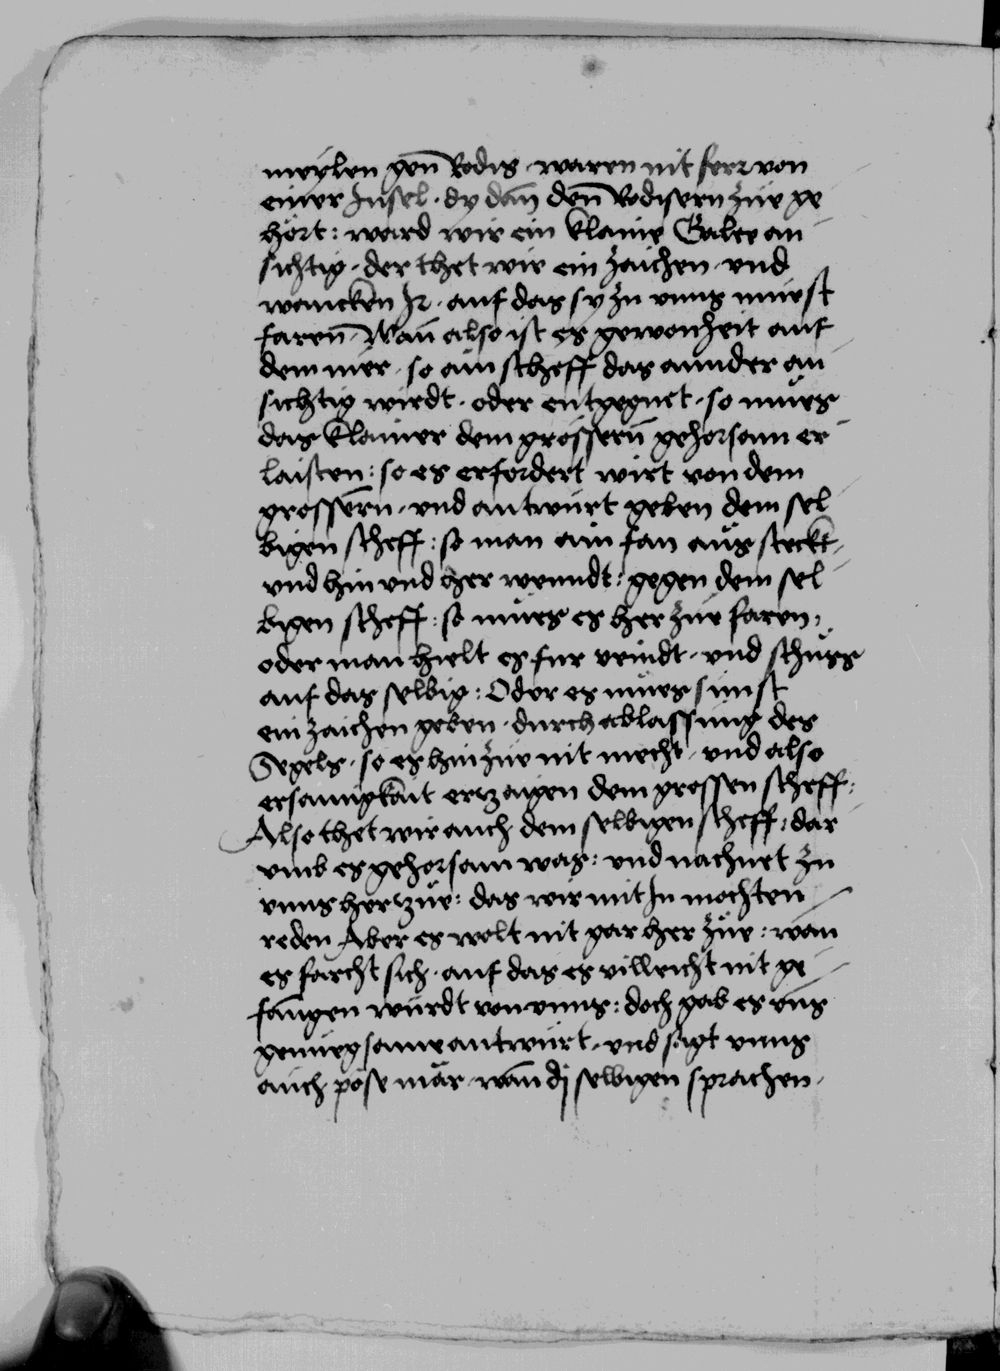 meylen gen̄ Rodis · waren nit ferr von
einer Insel · dy dan̄ den̄ Rodisern zůe ge
hört : ward wir ein klaine Galee an
sichtig · der thet wir ein zaichen · vnd
wancken Ir · auf das sy zu vnns muest
faren̄ · Wan̄ also ist es gewonheit auf
dem mer · so ain scheff das annder an
sichtig wirdt · oder entgegnet · so mues
das klainer dem grossern̄ gehorsam er
laisten : so es erfordert wirt von dem
grossern̄ · vnd antwurt geben dem sel
bigen scheff : so man ain fan aus steckt
vnd hin vnd her wenndt : gegen dem sel
bigen scheff : so mues es her zůe faren ·
oder man hielt es fur veindt · vnd schůss
auf das selbig : Oder es mues sunst
ein zaichen geben · durch ablassung des
Segels · so es hin zůe nit mecht · vnd also
ersamigkait erzaigen dem grossen scheff :
Also thet wir auch dem selbigen scheff : dar
vmb es gehorsam was : vnd nachnet zu
vnns her zůe : das wir mit In mochten
reden Aber es wolt nit gar her zůe : wan
es farcht sich · auf das es villeicht nit ge
fangen wurdt von vnns : doch gab es vns
genuegsame antwurt · vnd sagt vnns
auch pöse mär · wan̄ dj selbigen sprachen ·